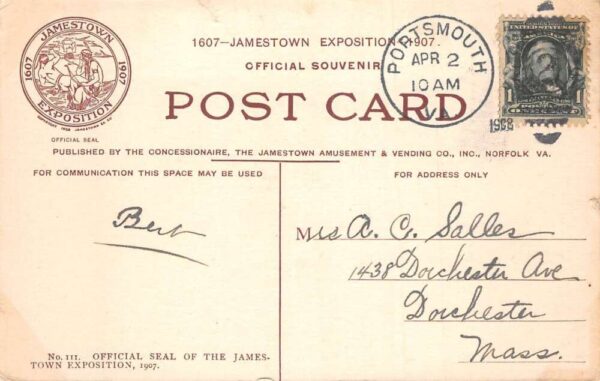 JAMESTOWN
1607 1907
EXPOSITION
OFFICIAL SEAL
1607—JAMESTOWN EXPOSITION—1907.
OFFICIAL SOUVENIR
POST CARD
PORTSMOUTH
APR 2
10 AM
VA.
1908
PUBLISHED BY THE CONCESSIONAIRE, THE JAMESTOWN AMUSEMENT & VENDING CO., INC., NORFOLK VA.
FOR COMMUNICATION THIS SPACE MAY BE USED
FOR ADDRESS ONLY
Bert
Mrs A. C. Salles
1438 Dorchester Ave
Dorchester
Mass.
No. 111. OFFICIAL SEAL OF THE JAMES-
TOWN EXPOSITION, 1907.